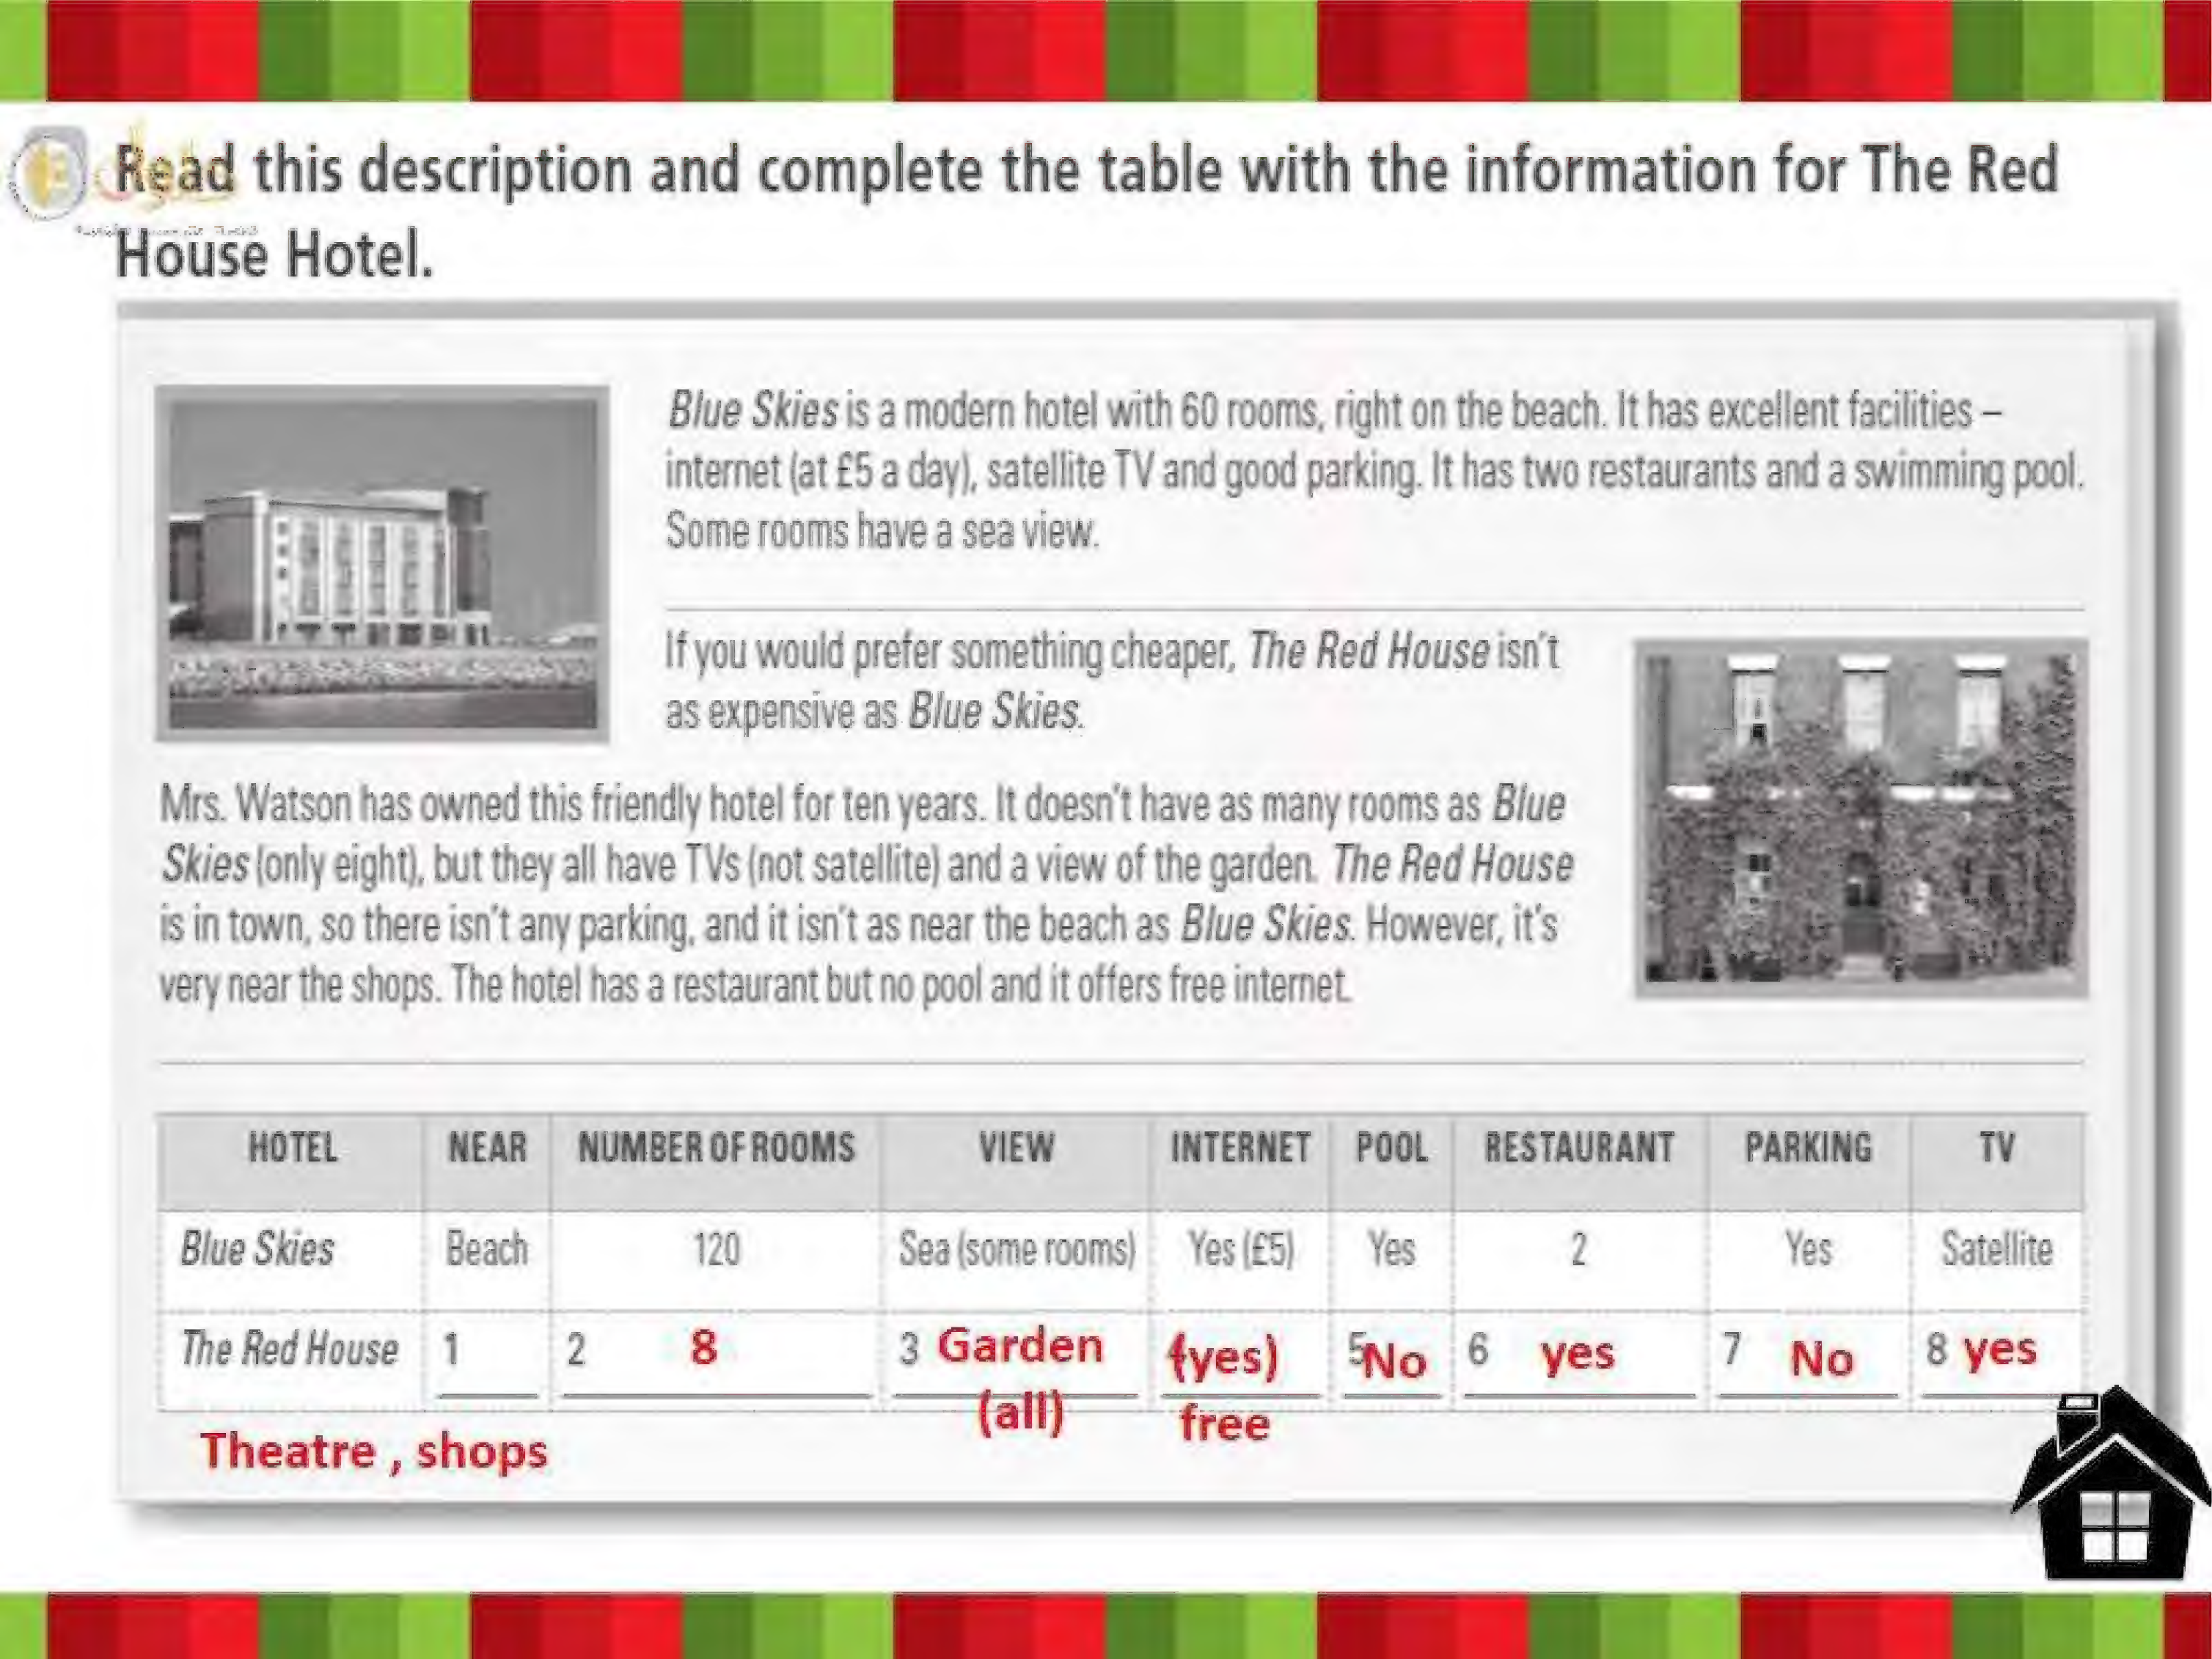 Read this description and complete the table with the information for The Red
House Hotel.
Blue Skies is a modern hotel with 60 rooms, right on the beach. It has excellent facilities –
internet (at £5 a day), satellite TV and good parking. It has two restaurants and a swimming pool.
Some rooms have a sea view.
If you would prefer something cheaper, The Red House isn't
as expensive as Blue Skies.
Mrs. Watson has owned this friendly hotel for ten years. It doesn't have as many rooms as Blue
Skies (only eight), but they all have TVs (not satellite) and a view of the garden. The Red House
is in town, so there isn't any parking, and it isn't as near the beach as Blue Skies. However, it's
very near the shops. The hotel has a restaurant but no pool and it offers free internet.
HOTEL NEAR NUMBER OF ROOMS VIEW INTERNET POOL RESTAURANT PARKING TV
Blue Skies Beach 120 Sea (some rooms) Yes (£5) Yes 2 Yes Satellite
The Red House 1 2 8 3 Garden (yes) 5 No 6 yes 7 No 8 yes
(all) free
Theatre , shops